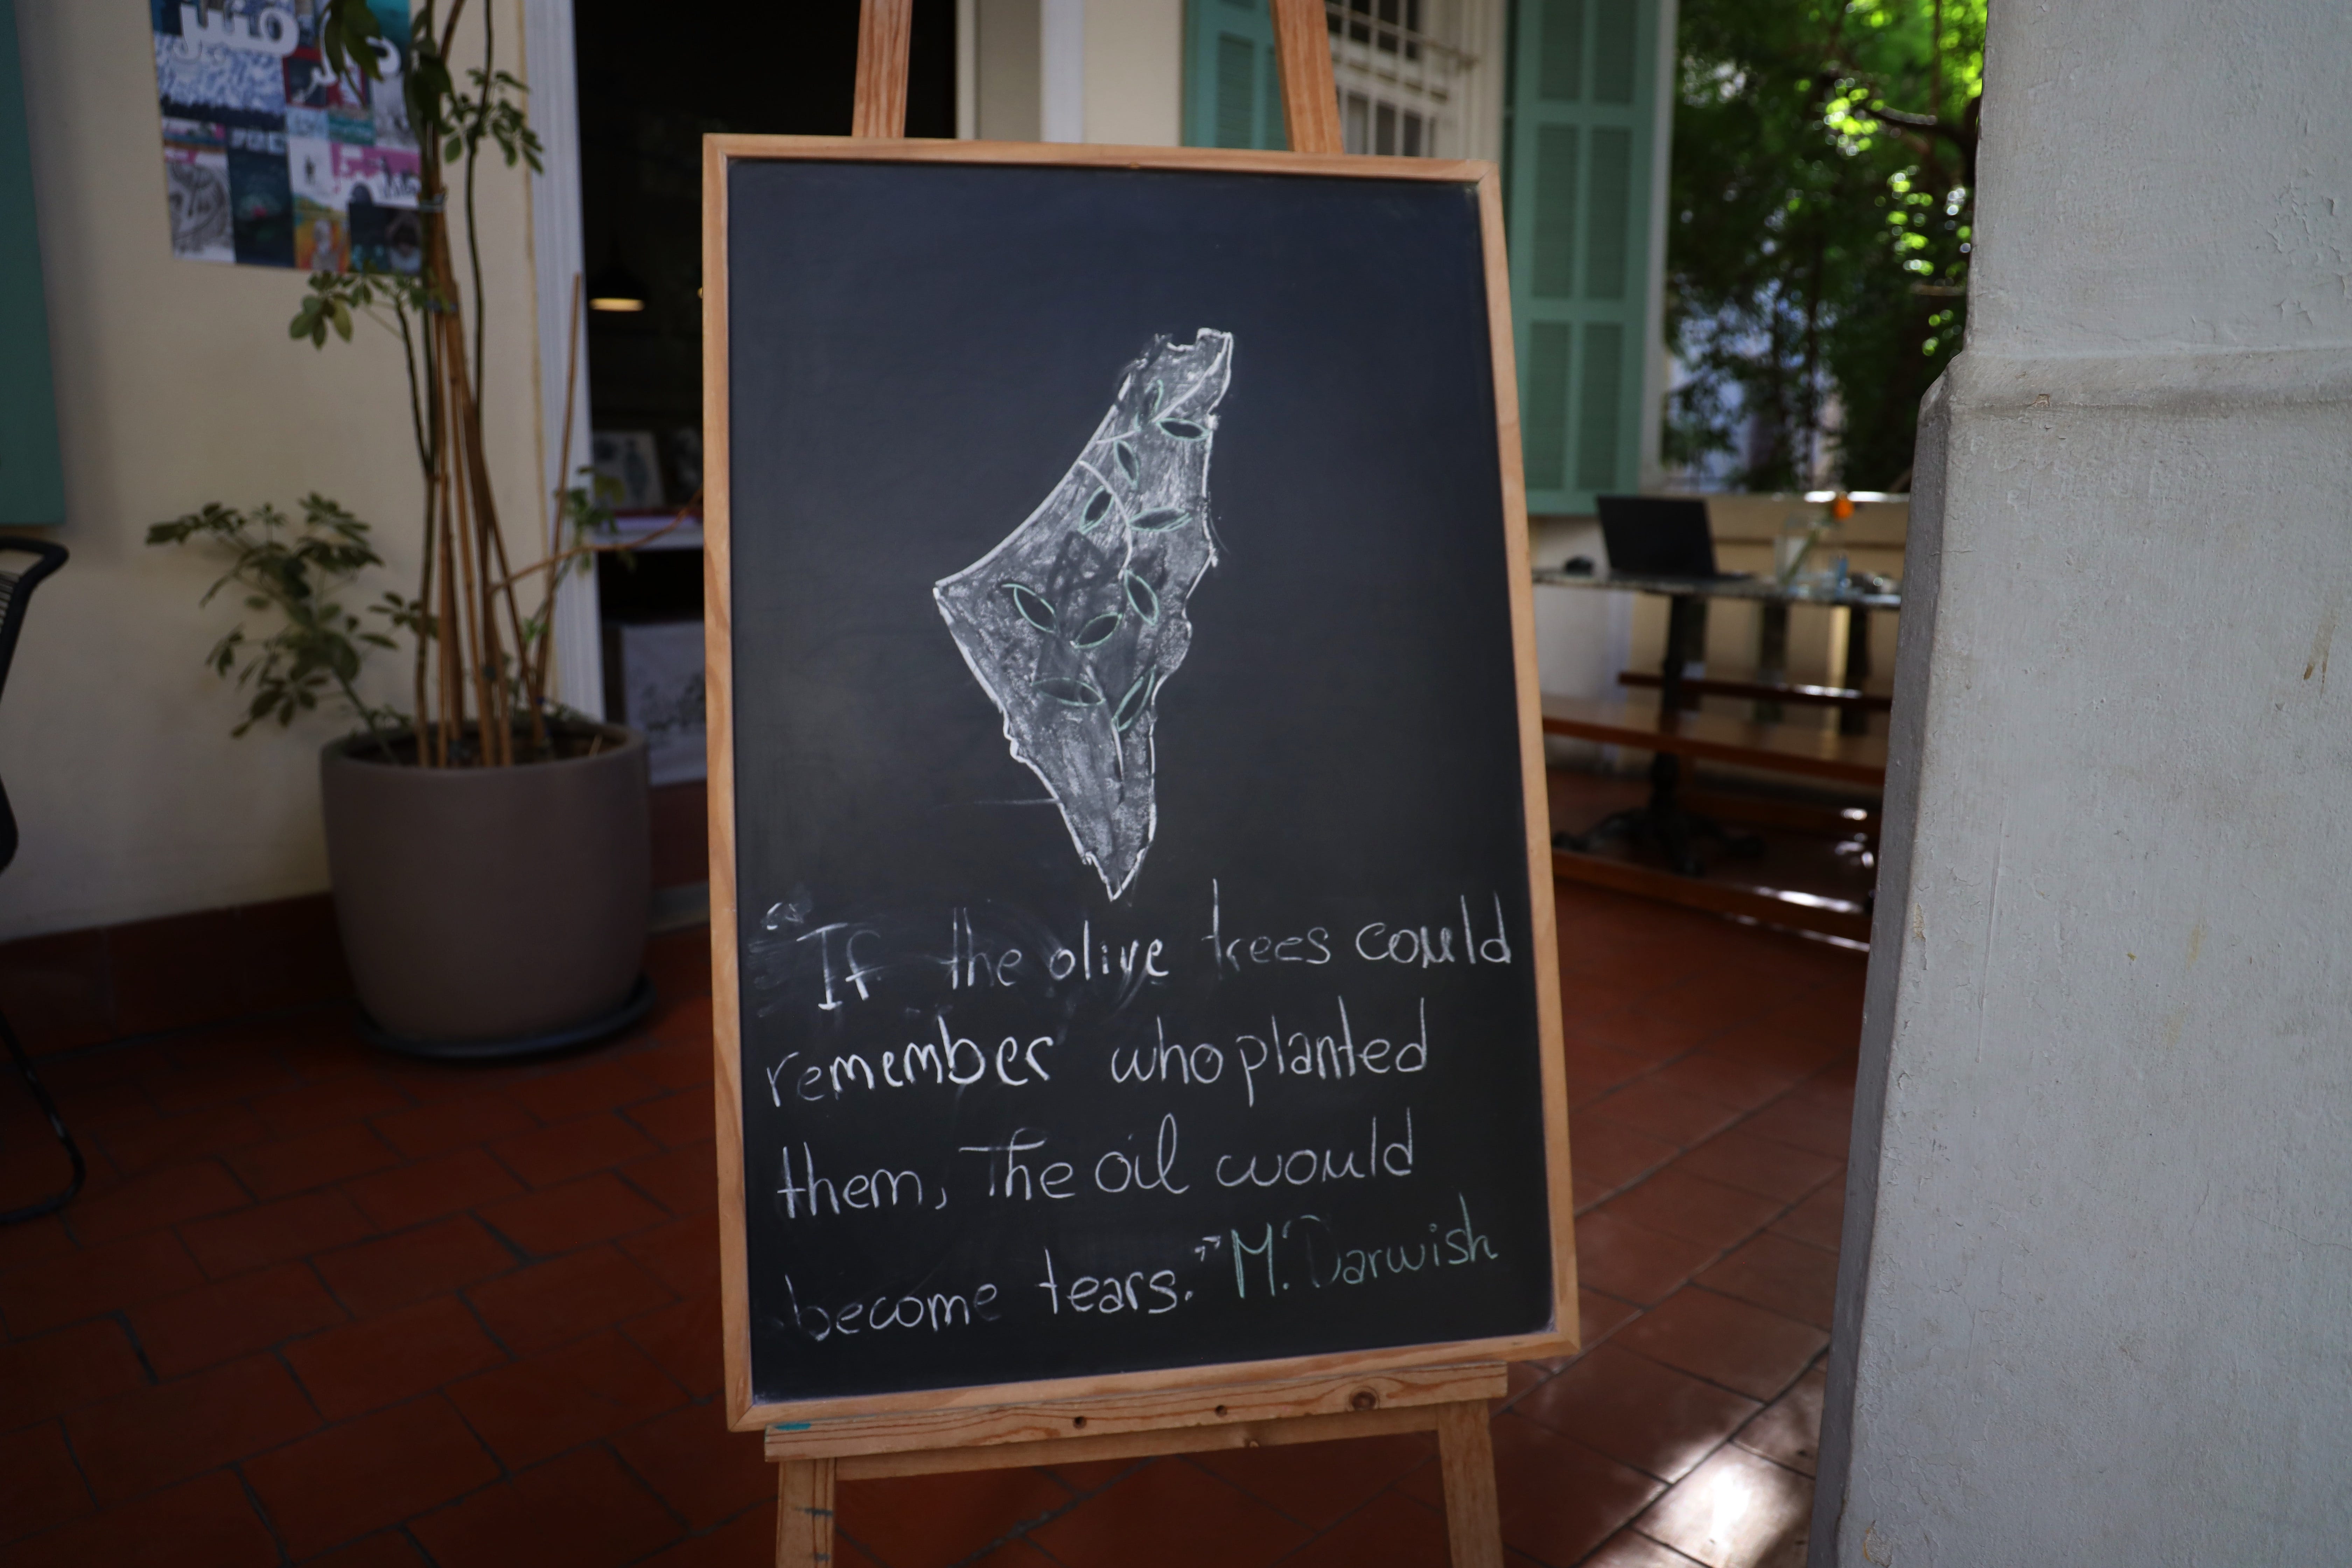 منبر
"If the olive trees could
remember who planted
them, The oil would
become tears." M. Darwish